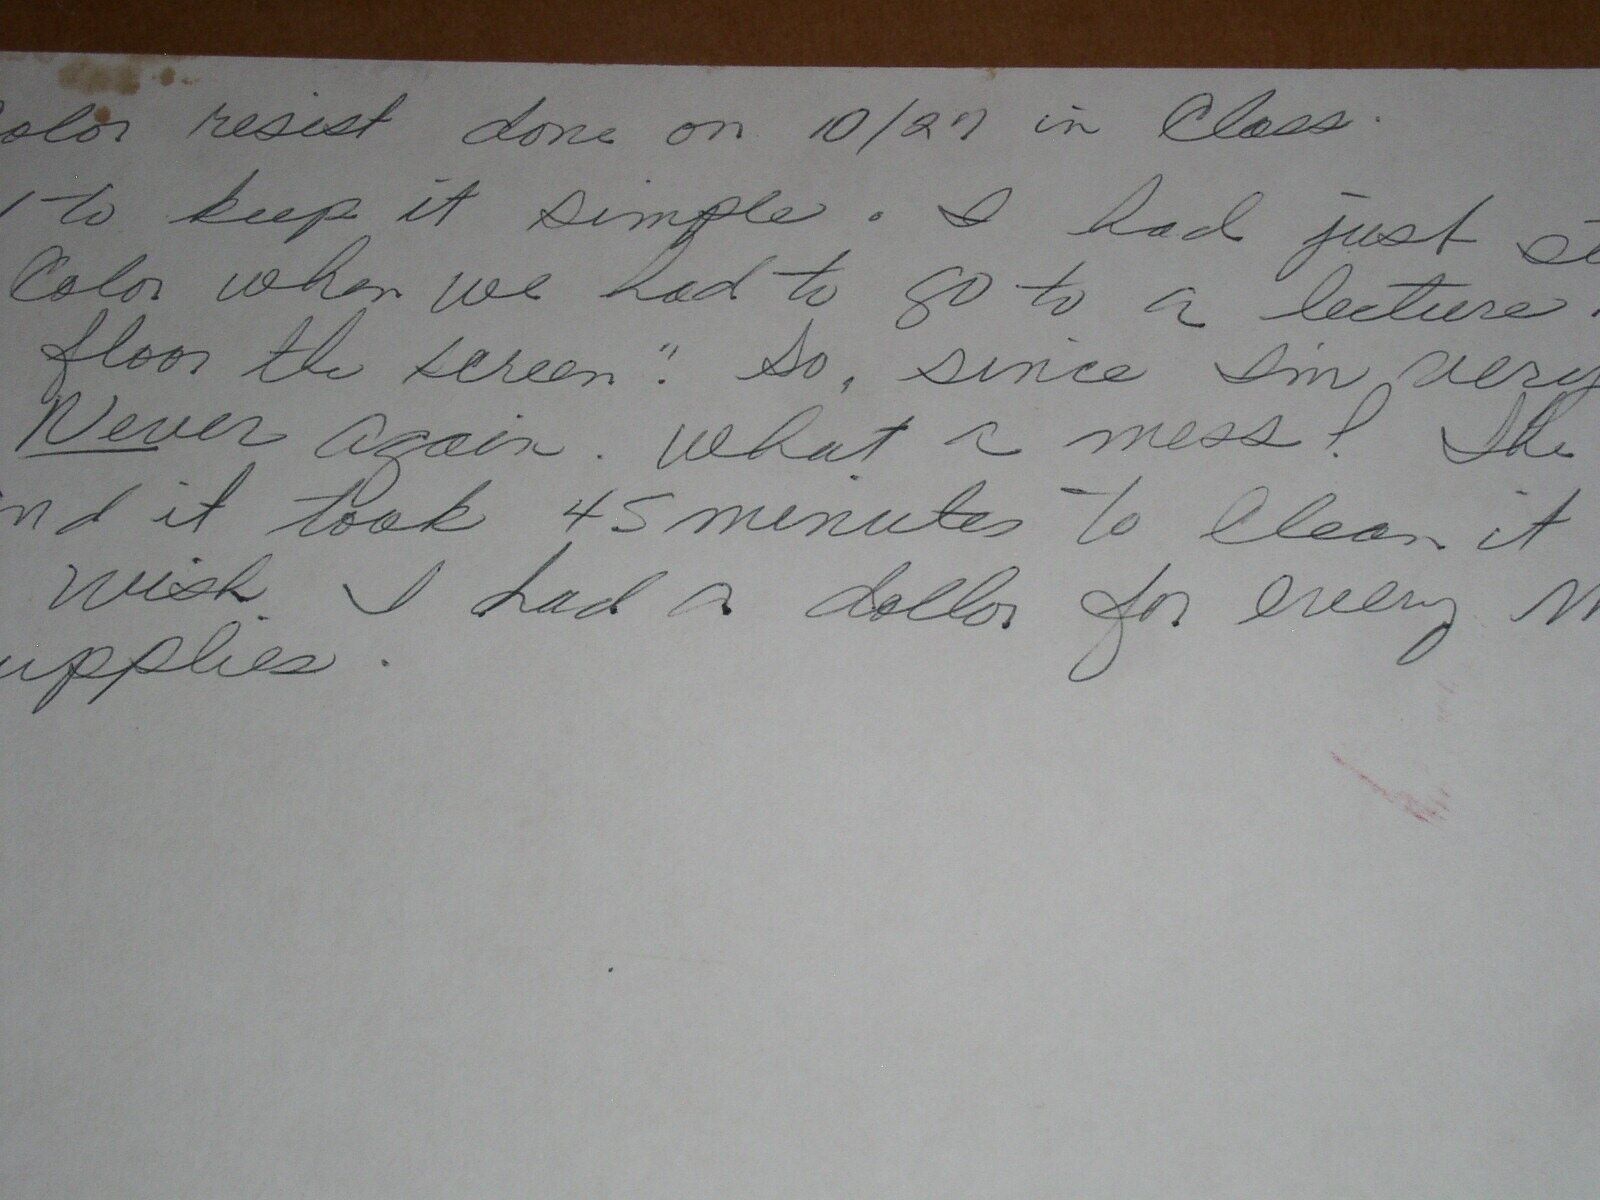 Color resist done on 10/27 in Class.
to keep it simple. I had just st
Color when we had to go to a lecture.
floor the screen". So, since I'm very
Never again. What a mess! The
nd it took 45 minutes to Clean it
wish I had a dollar for every m
upplies.